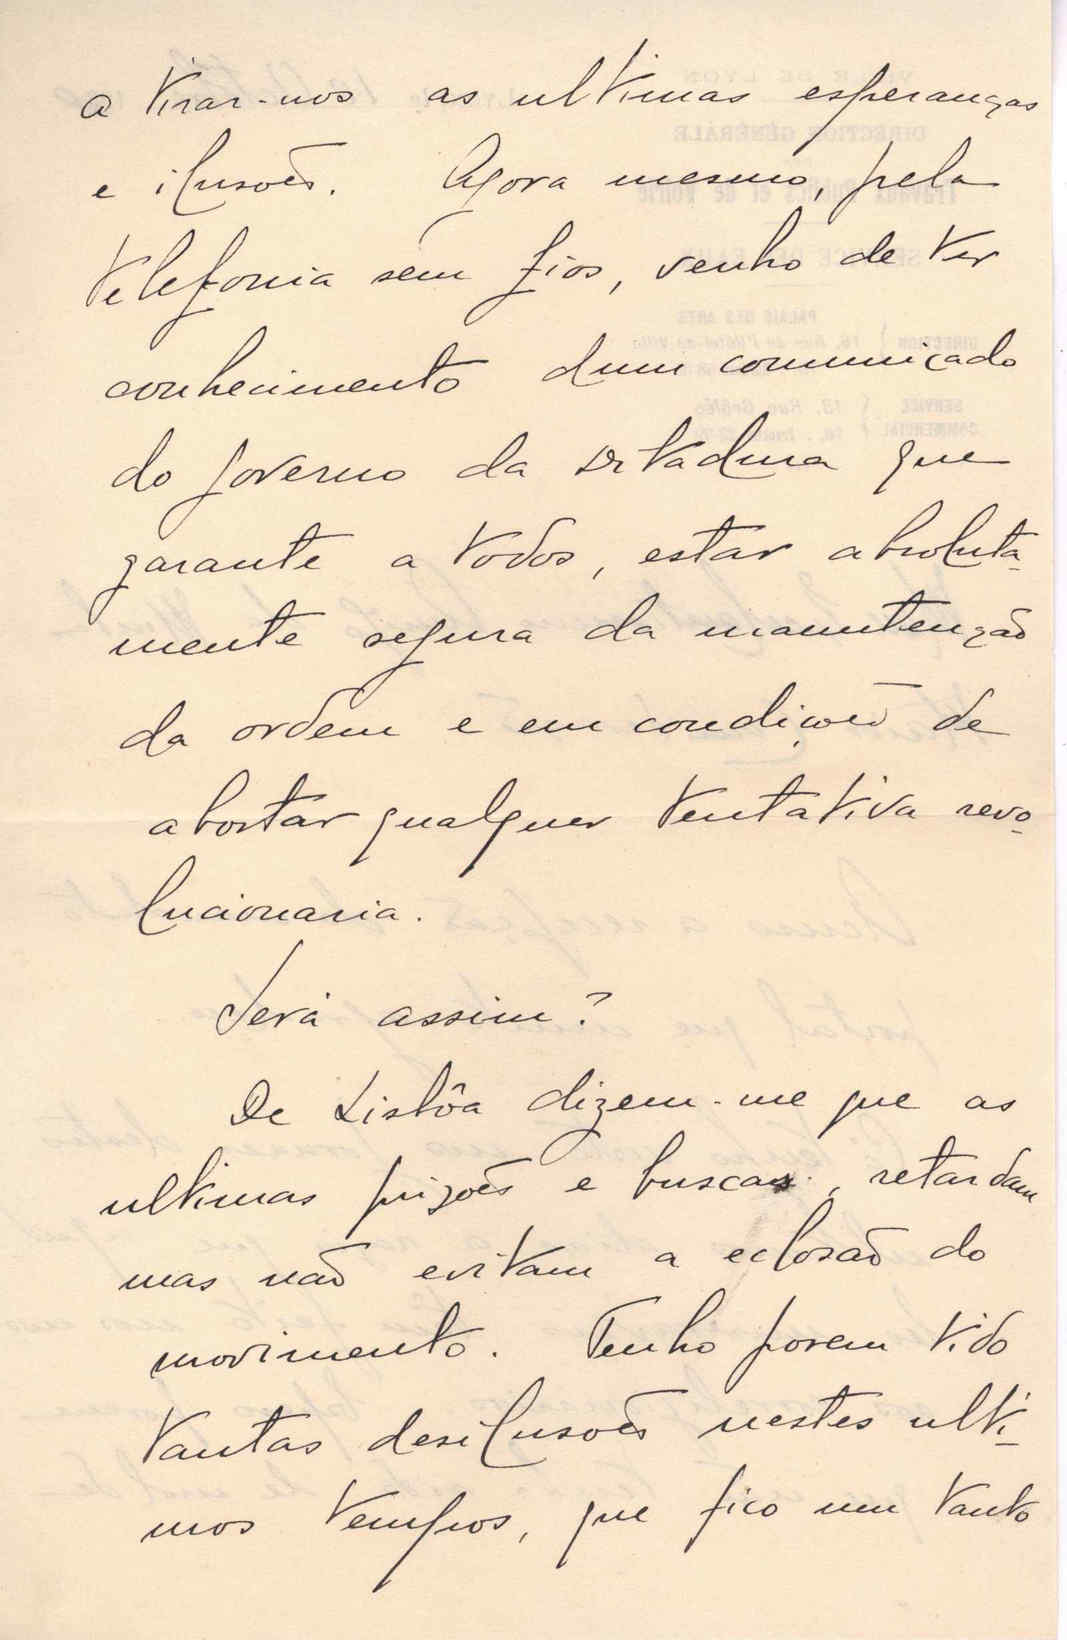 a tirar-nos as ultimas esperanças
e ilusões. Agora mesmo, pela
telefonia sem fios, venho de ter
conhecimento dum comunicado
do governo da ditadura que
garante a todos, estar absoluta-
mente segura da manutenção
da ordem e em condições de
abortar qualquer tentativa revo-
lucionaria.
Será assim?
De Lisbôa dizem-me que as
ultimas prizões e buscas, retardam
mas não evitam a eclosão do
movimento. Tenho porem tido
tantas desilusões nestes ulti-
mos tempos, que fico um tanto